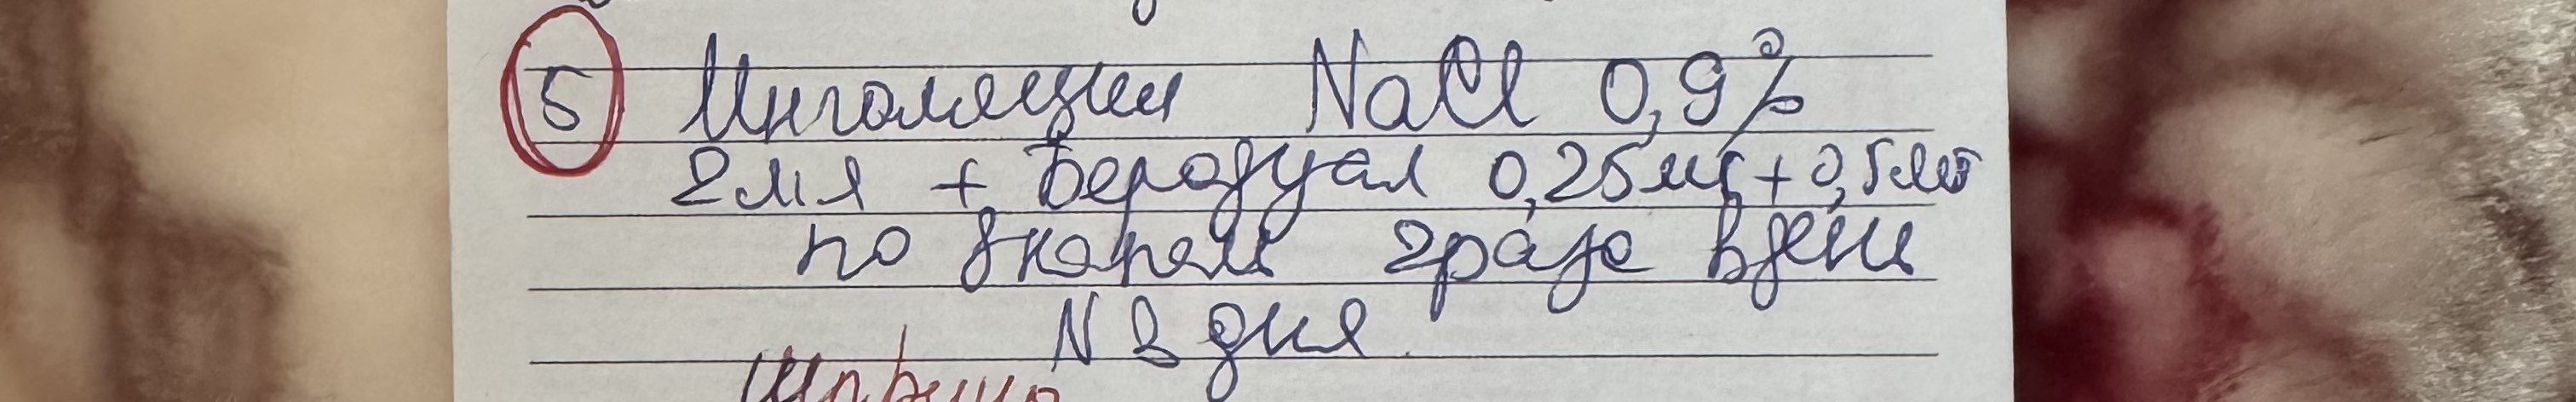 5 Ингаляции NaCl 0,9%
2мл + Беродуал 0,25мг+0,5мл
по 8капель 2раза вдень
N 3 дня